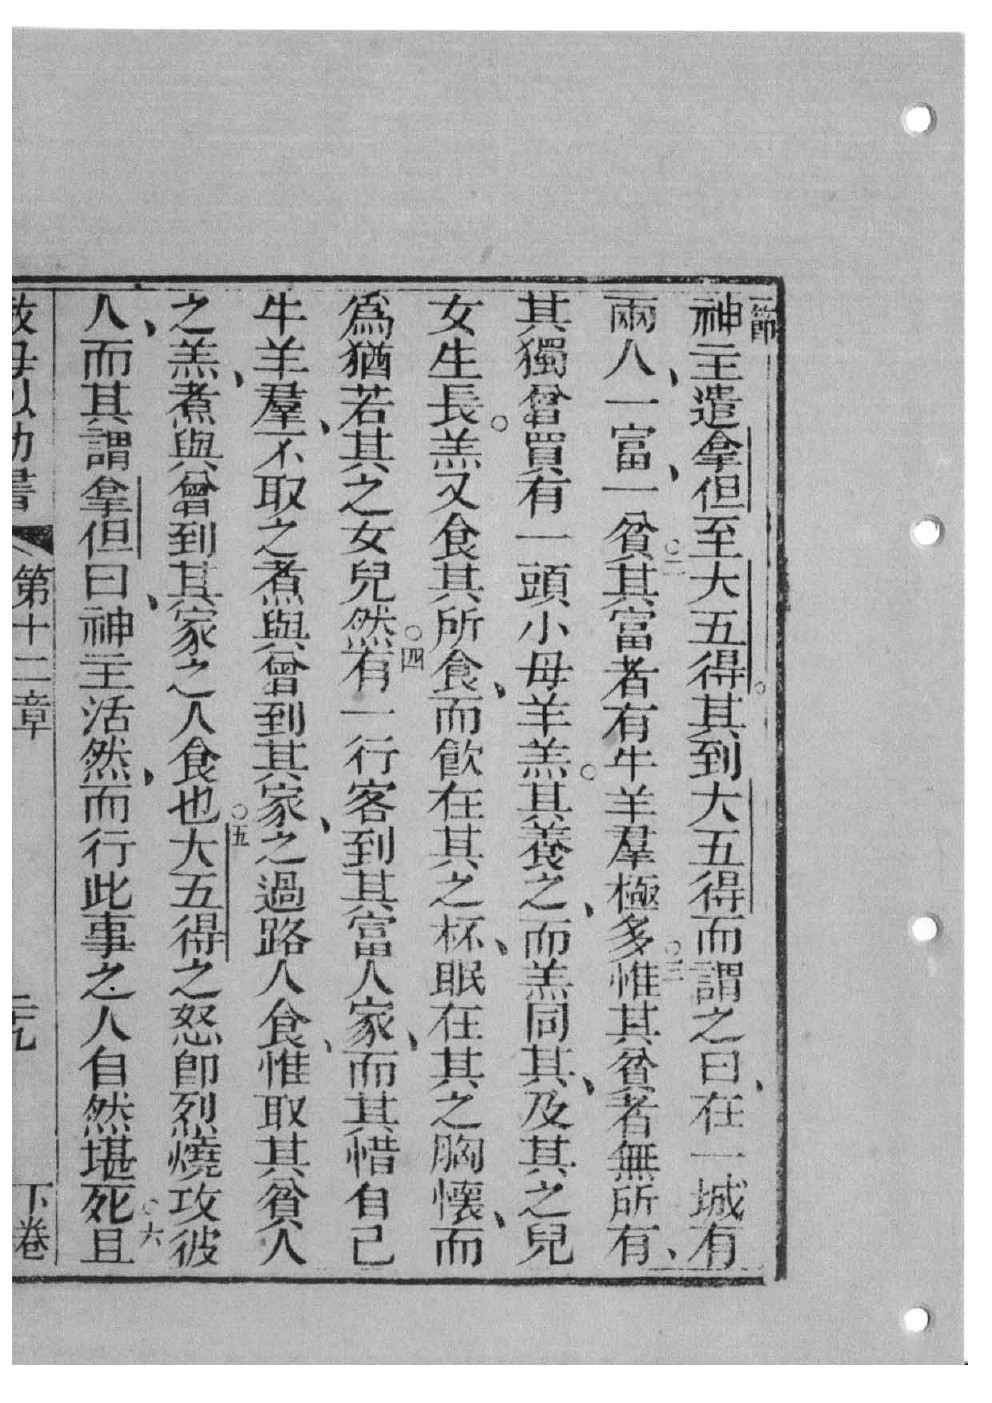 一節
神主遣拿但至大五得。其到大五得而謂之曰、在一城有
兩人、一富、一貧。○二其富者有牛羊羣極多○三惟其貧者無所有、
其獨曾買有一頭小母羊羔。其養之、而羔同其、及其之兒
女生長。羔又食其所食、而飲在其之杯、眠在其之胸懷、而
為猶若其之女兒然○四有一行客到其富人家、而其惜自己
牛羊羣、不取之煮與曾到其家、之過路人食、惟取其貧人
之羔、煮與曾到其家之人食也○五大五得之怒即烈燒攻彼
人、而其謂拿但曰、神主活然、而行此事之人自然堪死○六且
撒母以勒書 第十二章 二九 下卷